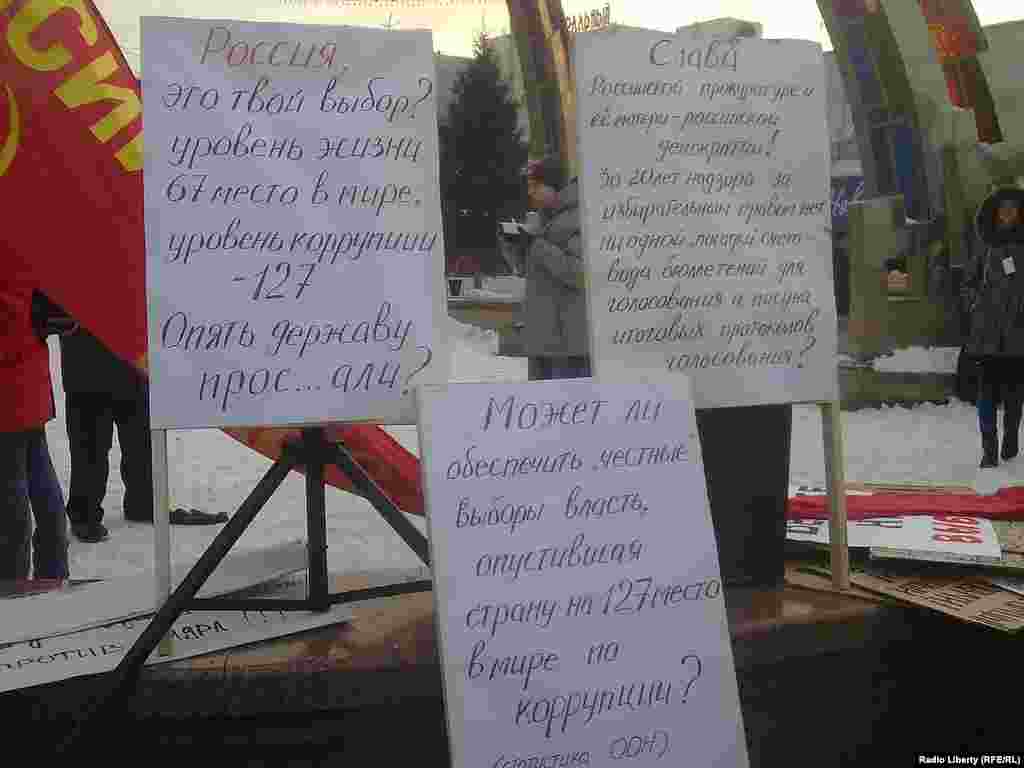 Россия,
это твой выбор?
уровень жизни
67 место в мире.
уровень коррупции
-127
Опять державу
прос...али?
Слава
Российской прокуратуре и
её матери - российской
демократии!
За 20 лет надзора за
избирательным правом нет
ни одной
вода бюллетеней для
голосования и
итоговых протоколов
голосования?
Может ли
обеспечить честные
выборы власть,
опустившая
страну на 127 место
в мире по
коррупции?
(статистика ООН)
против
Radio Liberty (RFE/RL)